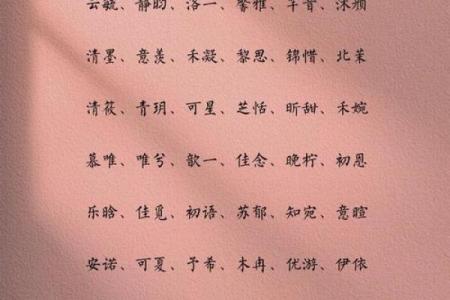 云毓、静昀、洛一、馨雅、芊音、沐颜
清墨、意羡、禾凝、黎思、锦惜、北茉
清筱、青玥、可星、芝恬、昕甜、禾婉
慕唯、唯兮、歆一、佳念、晚柠、初恩
乐晗、佳觅、初语、苏郁、知宛、意暄
安诺、可夏、予希、木冉、优游、伊依